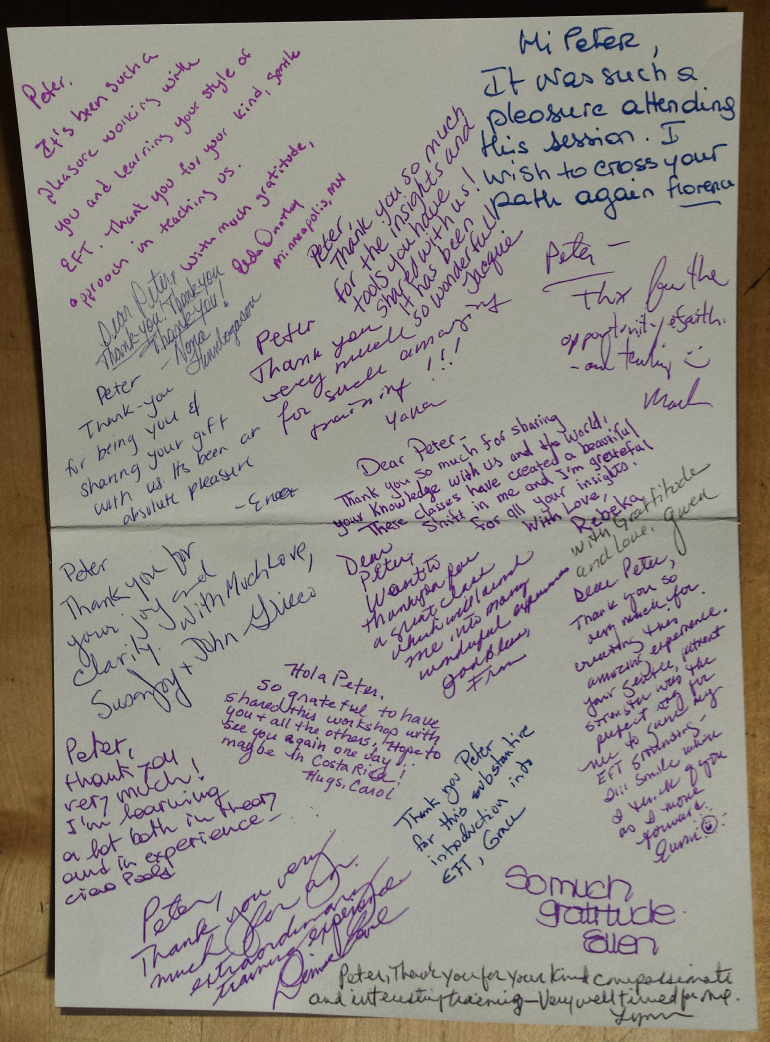 Peter,
It's been such a
pleasure working with
you and learning your style of
EFT. Thank you for your kind, gentle
approach in teaching us.
With much gratitude,
Minneapolis, MN
Hi Peter,
It was such a
pleasure attending
this session. I
wish to cross your
path again Florence
Peter,
Thank you so much
for the insights and
tools you have
shared with us!
It has been
so wonderful!
Jacquie
Dear Peter,
Thank you! Thank you
Thank you!
- Nona
Peter
Thank you
very much
for such amazing
training !!!
Yana
Peter -
Thx for the
opportunity
- and teaching
Mark
Peter
Thank-you
for being you &
sharing your gift
with us. Its been an
absolute pleasure
Dear Peter -
Thank you so much for sharing
your knowledge with us and the world,
These classes have created a beautiful
Shift in me and I'm grateful
for all your insights.
With Love,
Rebeka
With Grattitude
and love, Gwen
Peter
Thank you for
your joy and
clarity. With Much Love,
Susanjoy + John Grieco
Dear
Peter,
Want to
thank you for
a great class
which will send
me into many
wonderful experiences
God Bless,
Fran
Dear Peter,
Thank you so
very much for
creating this
amazing experience.
Your gentle,
was the
perfect way for
me to
EFT
I'll smile when
I think of you
as I move
forward.
Hola Peter,
So grateful to have
shared this workshop with
you + all the others, Hope to
see you again one day!
maybe in Costa Rica!
Hugs, Carol
Peter,
thank you
very much!
I'm learning
a lot both in theory
and in experience -
ciao
Thank you Peter
for this substantive
introduction into
EFT, Grace
Peter,
Thank you very
much for an
extraordinary
training experience
So much
gratitude
Ellen
Peter, Thank you for your kind compassionate
and interesting training - Very well timed for me.
Lynn